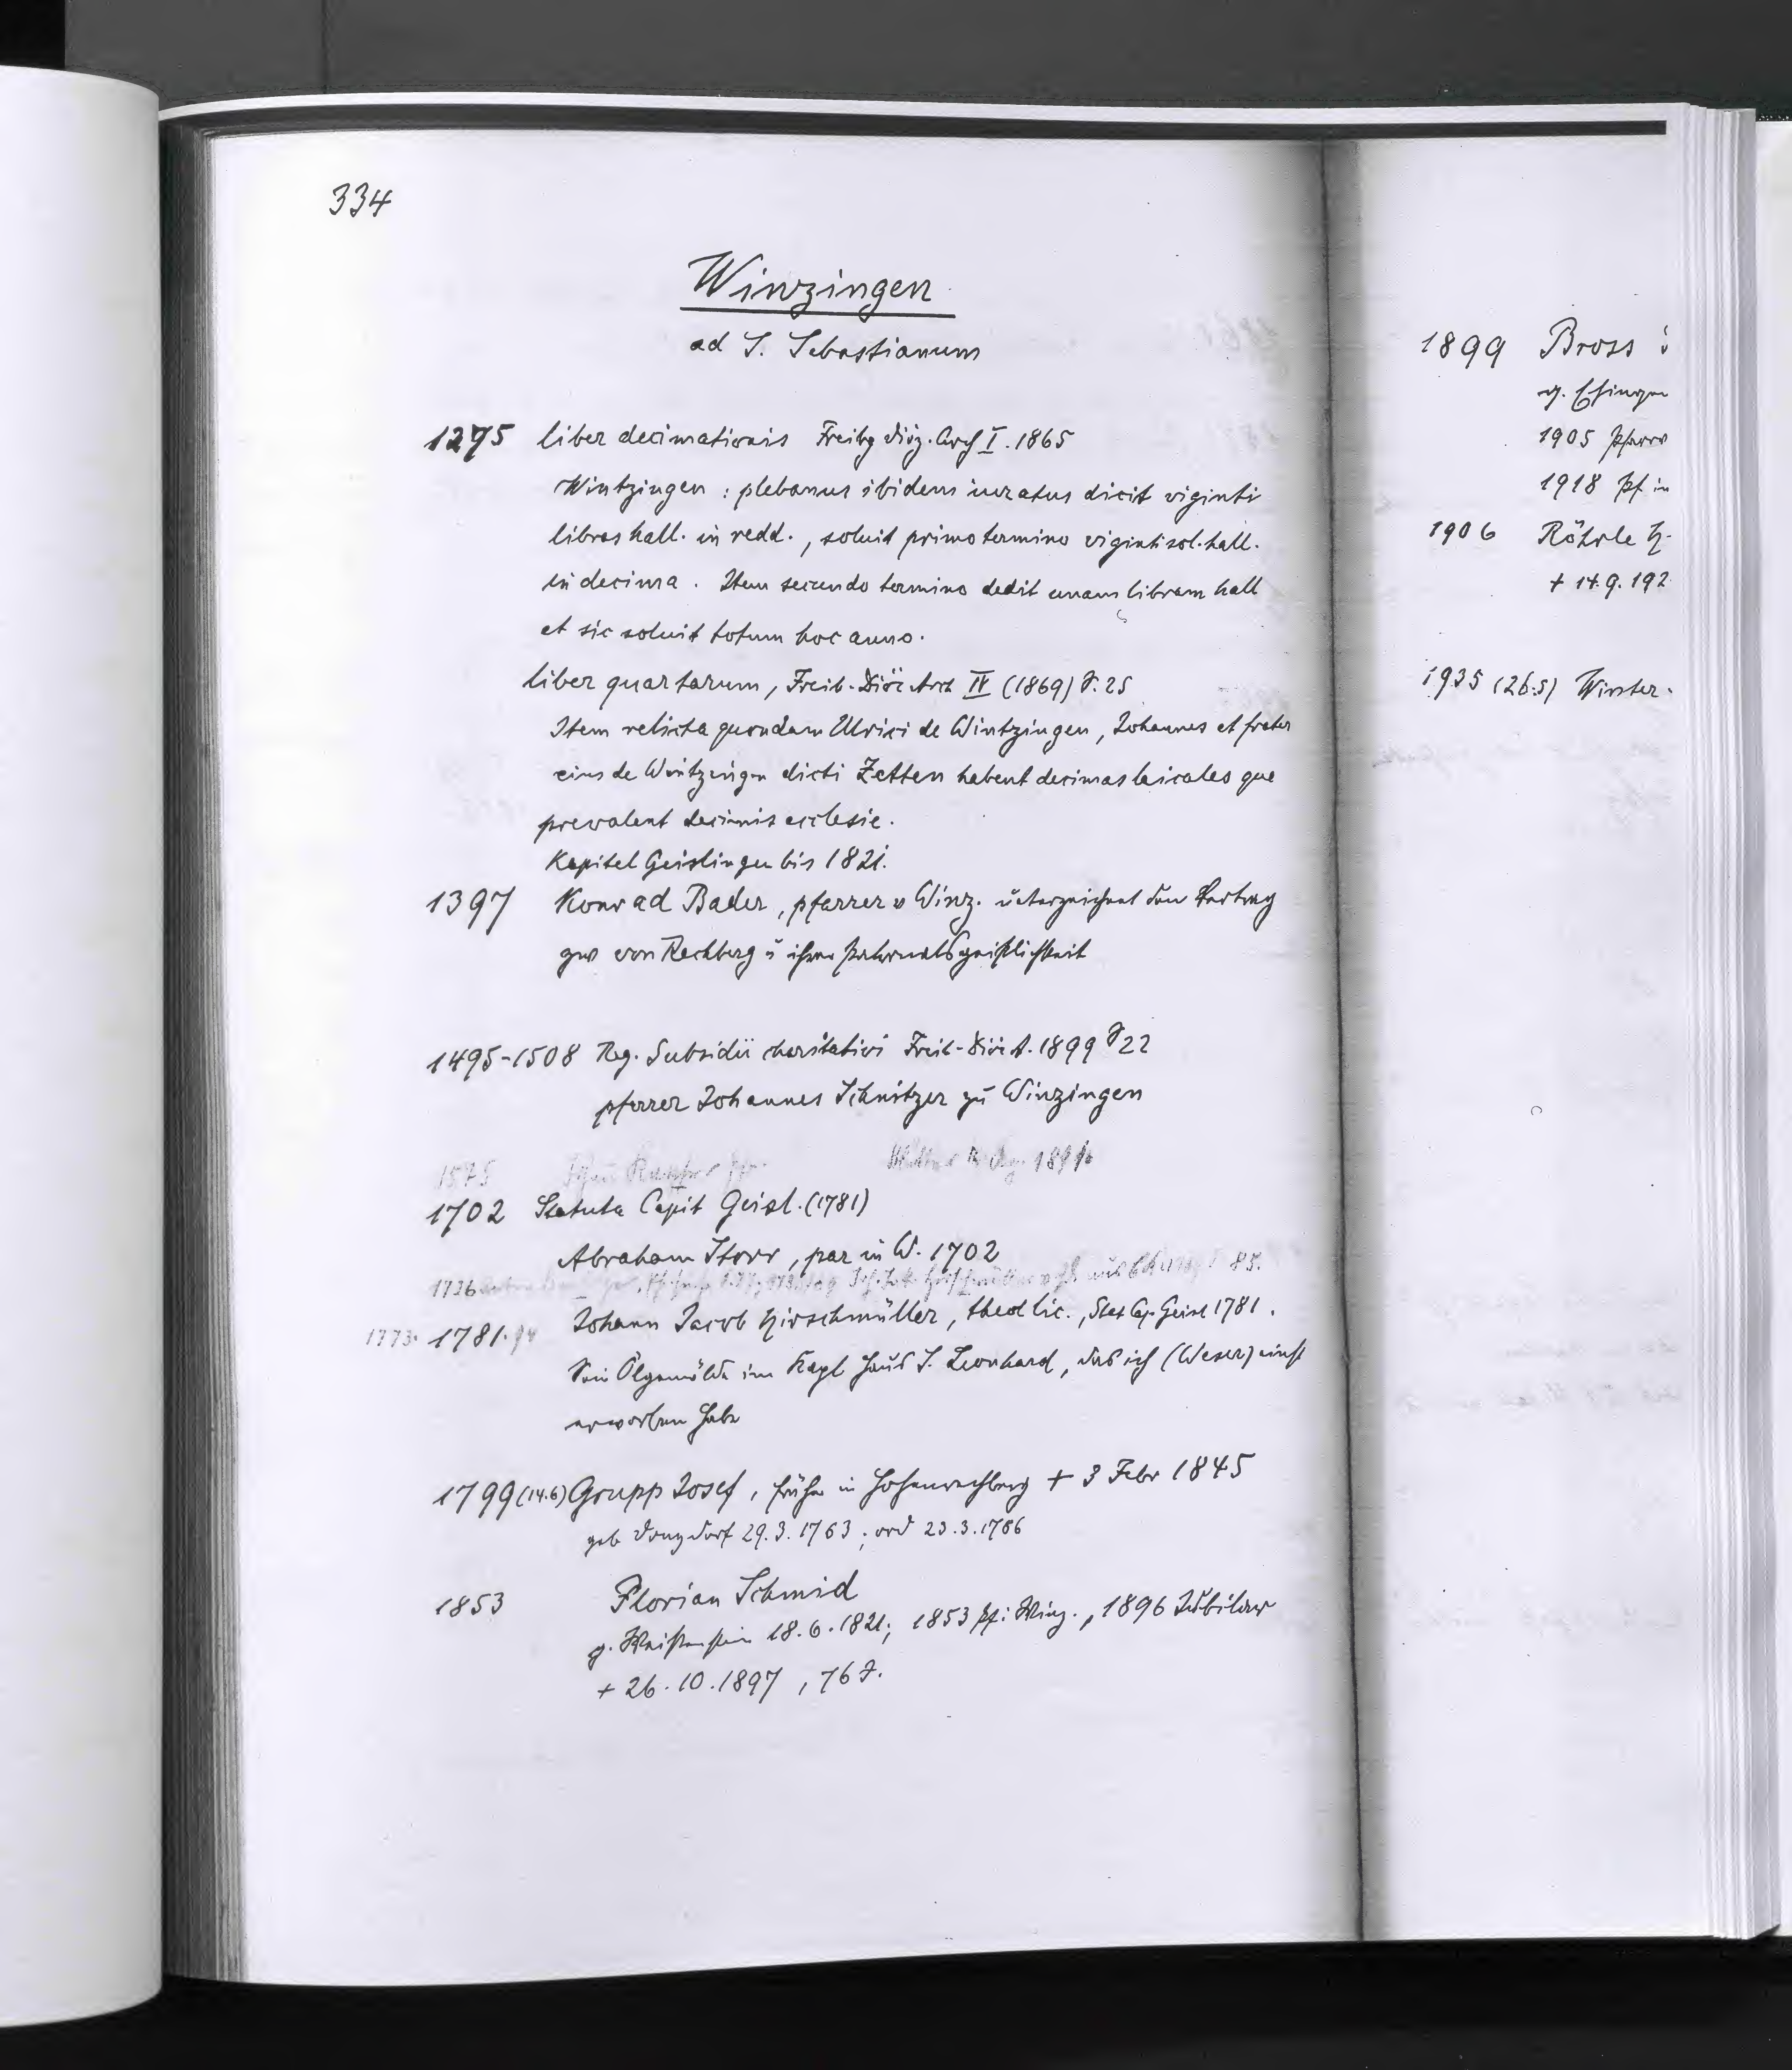 334
Winzingen
ad S. Sebastianum
1275 liber decimationis Freibg Diöz. Arch I. 1865
Wintzingen : plebanus ibidem iuratus dicit viginti
libras hall. in redd., soluit primo termino viginti sol. hall.
in decima. Item secundo termino dedit unam libram hall
et sic soluit totum hoc anno.
liber quartarum, Freib. Diöc Arch IV (1869) S. 25
Item relicta quondam Ulrici de Wintzingen, Johannes et frater
eius de Wintzingen dicti Zetten habent decimas laicales que
prevalent decimis ecclesie.
Kapitel Geislingen bis 1821.
1397 Konrad Bader, pfarrer v Winz. unterzeichnet den Vertrag
zw von Rechberg u ihrer Patronatsgeistlichkeit
1495-1508 Reg. Subsidii charitativi Freib-Diöc A. 1899 S 22
pfarrer Johannes Schnitzer zu Winzingen
1575
1702 Statuta Capit Geisl. (1781)
Abraham Storr, par in W. 1702
1736
1773. 1781. Johann Jacob Hirschmüller, theol lic., Stat Cap. Geisl 1781.
Sein Ölgemälde im Kapl Haus S. Leonhard, das ich (Weser) einst
erworben habe
1799 (14.6) Grupp Josef, früher in Hohenrechberg + 3 Febr 1845
geb Donzdorf 29.3.1763; ord 23.3.1786
1853 Florian Schmid
g. Weißenstein 18.6.1821; 1853 Pf. i Winz., 1896 Jubilar
+ 26.10.1897, 76 J.
1899 Bross
g. Essingen
1905 Pfarr
1918 Pf in
1906 Röhrle H.
+ 14.9.192
1935 (26.5) Winter.